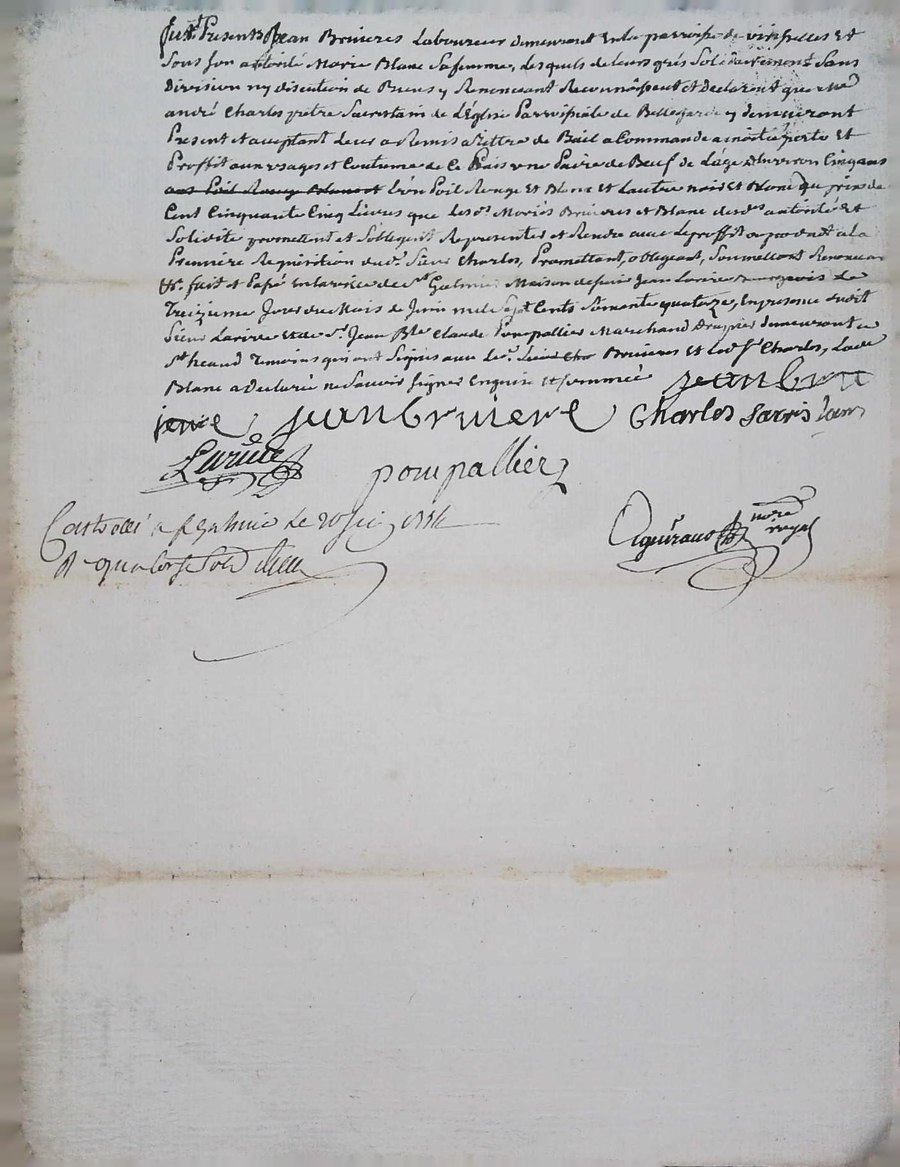 furt Presents Jean Bruieres Laboureur demeurant En la parroisse de et
Sous son autorité Marie Blanc Sa femme, lesquels de leurs grés Solidairement Sans
Division ny discution de Biens y Renoncant Reconnoissent et Declarent que Mre
andré Charles pretre Sacristain de L'Eglise Parroissiale de Bellegarde y demeurant
Present et acceptant leur a Remis a tittre de Bail a Commande a moitié perte et
Proffit aux usages et Coutume de Ce Pais une Paire de Bœuf de L'age d'Environ Cinq ans
L'un Poil Rouge et Blanc et L'autre noir et Blanc du prix de
Cent Cinquante Cinq Livres que Les ds. Mariés Bruieres et Blanc de ds. autorité et
Solidité promettent et S'obligent Representer et Rendre avec le proffit a la
Premiere Requisition dud. Sieur Charles, Promettant, obligeant, Soumettant Renoncant
&c. fait et Passé en la ville de St. Galmier Maison de Sieur Jean Larive Bourgeois Le
Treizieme Jour du Mois de Juin mil Sept Cents Soixante quatorze, En presence dudit
Sieur Larive et de Sr. Jean Bte. Claude Pompallier Marchand Drapier demeurant a
St. heand Temoins qui ont Signés avec Led. Bruieres et Led. Sr. Charles, Lade.
Blanc a Declaré ne Savoir Signer Enquise et Sommée jean bru
iere jean bruiere Charles Sacristain
Larive
pompallier
Controllé a St Galmier Le 20 juin 1774
R quatorze Sols
aguiraud nore
royal